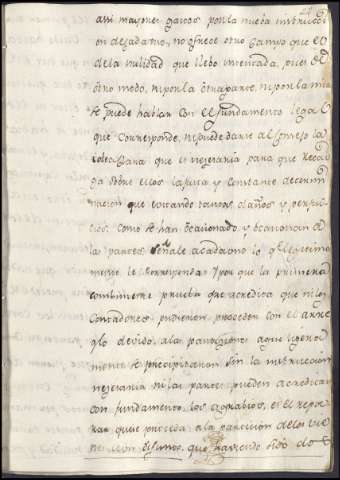 assi mayores gastos por la nueba instrucci
on de sadatio, no ofrece otro campo que el
de la nulidad que llebo intentada, pues de
otro modo, ni por la otra parte, ni por la mia
se puede hablar con el fundamento legal
que corresponde, ni puede darse al
clara que es nezesaria para que recai
ga sobre ellos la justa y constante determi
nacion que evitando tantos daños y perjui
cios como se han ocasionado, y ocasionan a
las partes señale a cada uno lo q.e legitima
mente le corresponda: Y por que la primera
combincente prueba que acredita que ni los
Contadores pudieron proceder con el arre
glo devido, a la particion a que ligera
mente se precipitaron sin la instruccion
nezesaria ni las partes pueden acreditar
con fundamento los agrabios, es el repa
rar que proceda a la particion de los vie
nes de un difunto, que haviendo sido dos